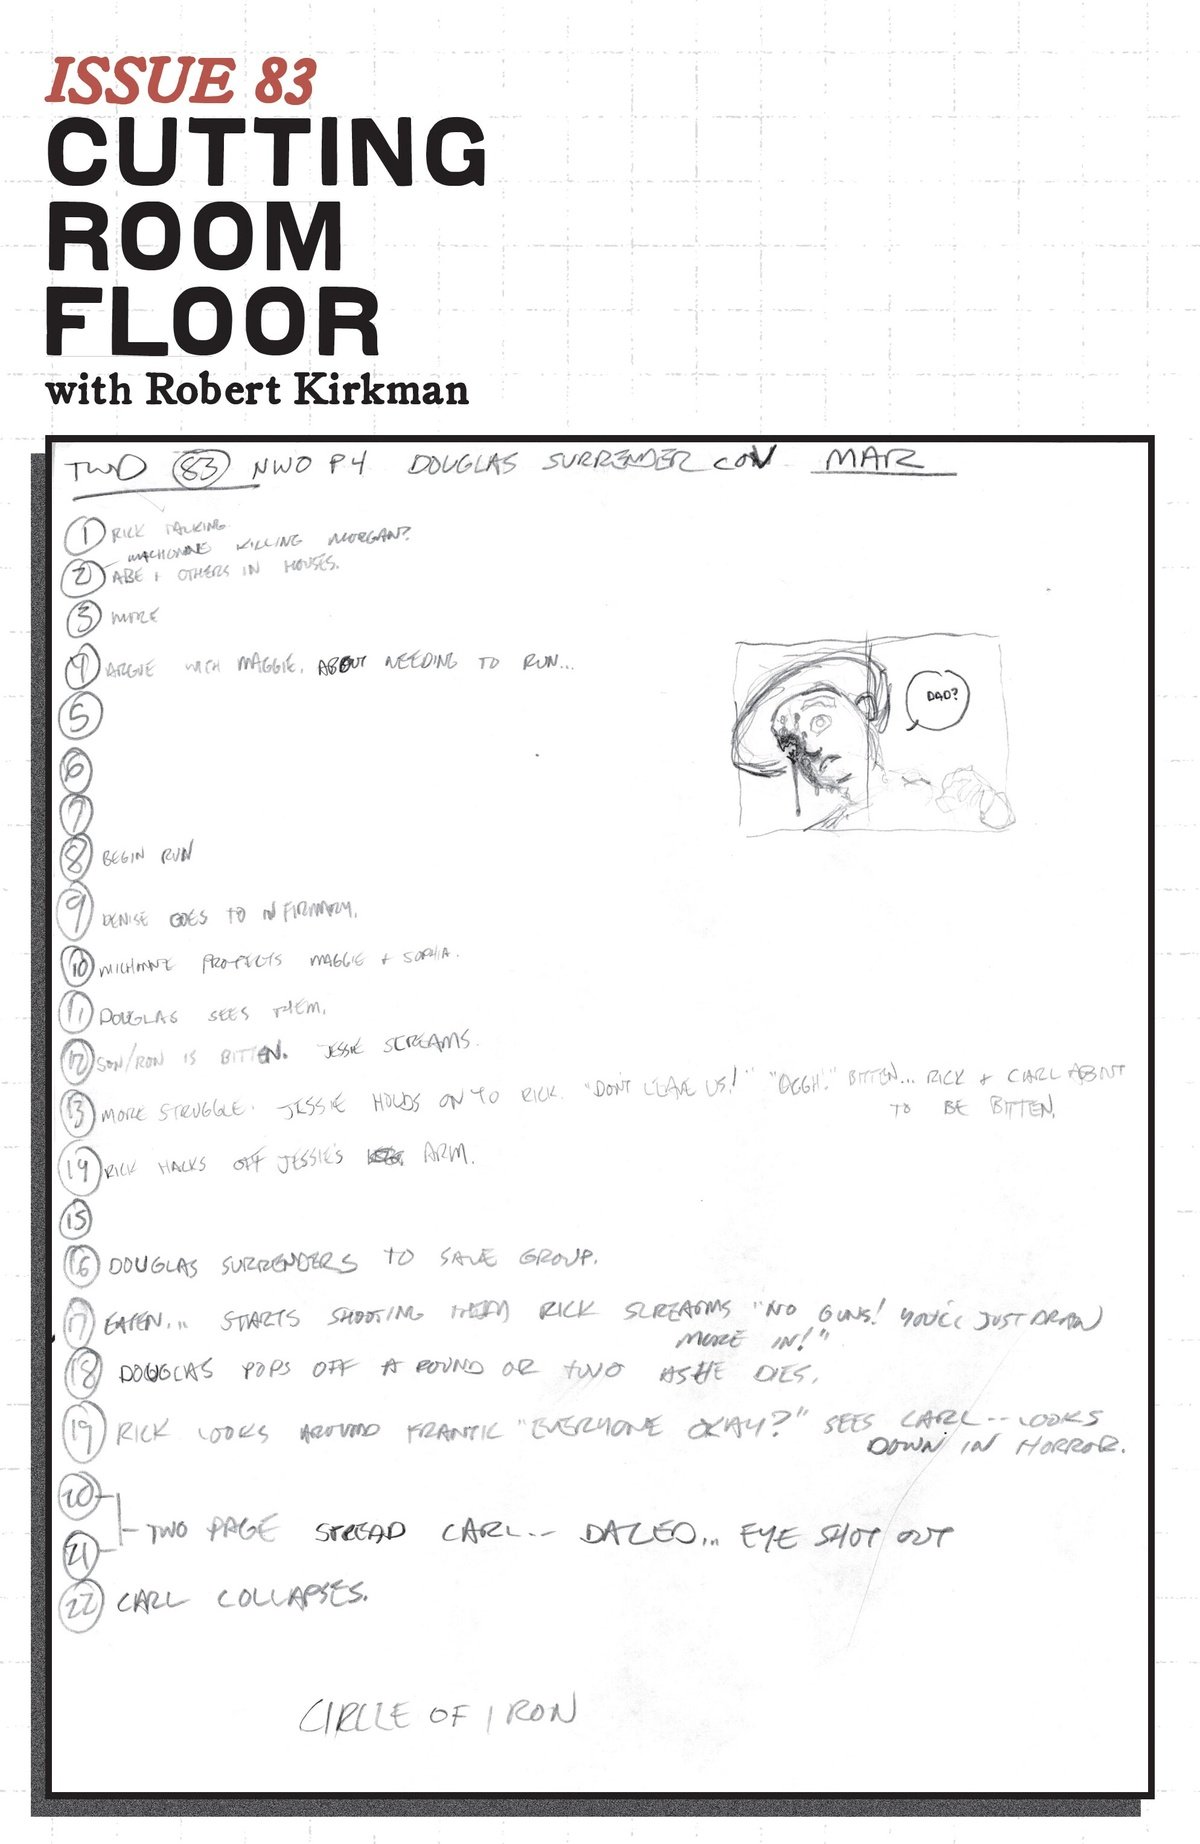 ISSUE 83
CUTTING
ROOM
FLOOR
with Robert Kirkman
TWD 83 NWO P4 DOUGLAS SURRENDER COV MAR
1 RICK TALKING
MACHONNE KILLING MORGAN?
2 ABE + OTHERS IN HOUSES.
3 MORE
4 ARGUE WITH MAGGIE. ABOUT NEEDING TO RUN...
DAD?
5
6
7
8 BEGIN RUN
9 DENISE GOES TO INFIRMARY.
10 MICHONNE PROTECTS MAGGIE + SOPHIA.
11 DOUGLAS SEES THEM.
12 SON/RON IS BITTEN. JESSIE SCREAMS.
13 MORE STRUGGLE. JESSIE HOLDS ON TO RICK. "DON'T LEAVE US!" "OGGH!" BITTEN... RICK + CARL ABOUT
TO BE BITTEN.
14 RICK HACKS OFF JESSIE'S ARM.
15
16 DOUGLAS SURRENDERS TO SAVE GROUP.
17 EATEN... STARTS SHOOTING THEM RICK SCREAMS "NO GUNS! YOU'LL JUST DRAW
MORE IN!"
18 DOUGLAS POPS OFF A ROUND OR TWO AS HE DIES.
19 RICK LOOKS AROUND FRANTIC "EVERYONE OKAY?" SEES CARL-- LOOKS
DOWN IN HORROR.
20
TWO PAGE SPREAD CARL-- DAZED... EYE SHOT OUT
21
22 CARL COLLAPSES.
CIRCLE OF IRON